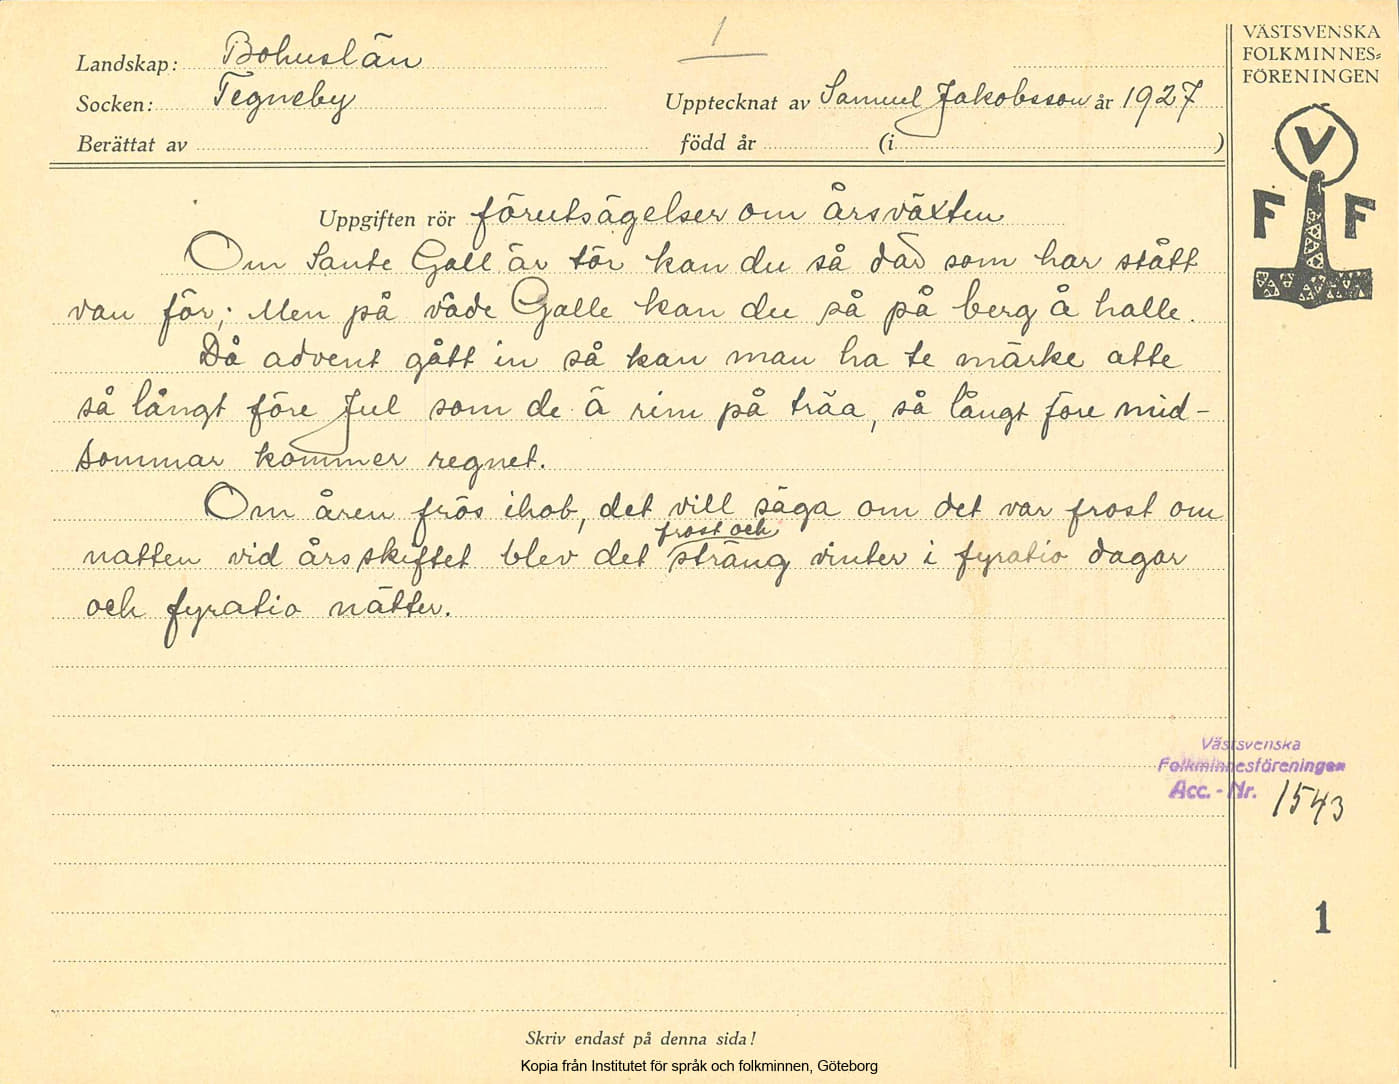 1
Landskap: Bohuslän
Socken: Tegneby
Upptecknat av Samuel Jakobsson år 1927
Berättat av född år (i )
VÄSTSVENSKA
FOLKMINNES=
FÖRENINGEN
V
F F
Uppgiften rör förutsägelser om årsväxten
Om Sante Gall är tör kan du så där som har stått
van för; Men på våde Galle kan du så på berg å halle.
Då advent gått in så kan man ha te märke atte
så långt före Jul som de ä rim på träa, så långt före mid-
sommar kommer regnet.
Om åren frös ihob, det vill säga om det var frost om
frost och
natten vid årsskiftet blev det sträng vinter i fyratio dagar
och fyratio nätter.
Västsvenska
Folkminnesföreningen
Acc.-Nr. 1543
1
Skriv endast på denna sida!
Kopia från Institutet för språk och folkminnen, Göteborg